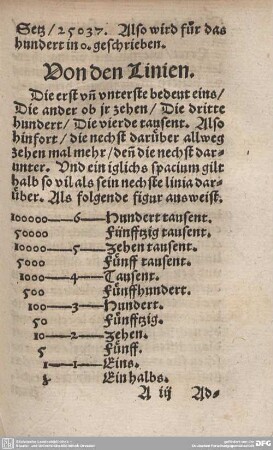 Setz/ 25037. Also wird für das
hundert in o. geschrieben.
Von den Linien.
Die erst vñ vnterste bedeut eins/
Die ander ob jr zehen/ Die dritte
hundert/ Die vierde tausent. Also
hinfort/ die nechst darüber allweg
zehen mal mehr/ deñ die nechst dar-
unter. Vnd ein iglichs spacium gilt
halb so vil als sein nechste linia dar-
über. Als folgende figur ausweist.
100000—6—Hundert tausent.
50000 Fünfftzig tausent.
10000—5—Zehen tausent.
5000 Fünff tausent.
1000—4—Tausent.
500 Fünffhundert.
100—3—Hundert.
50 Fünfftzig.
10—2—Zehen.
5 Fünff.
1—1—Eins.
Ein halbs.
A iij Ad-
DFG